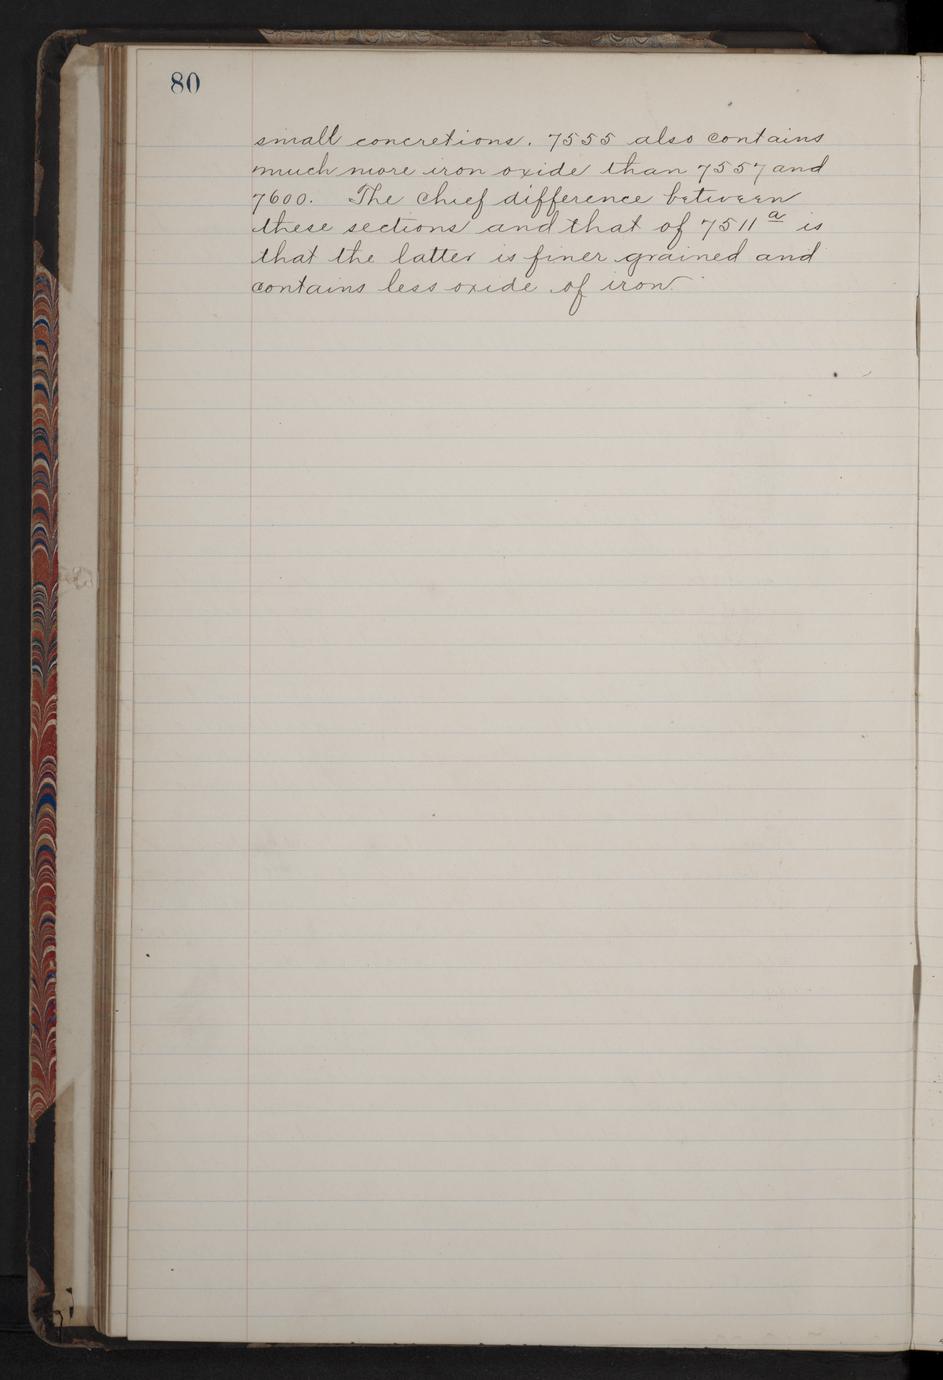 80
small concretions. 7555 also contains
much more iron oxide than 7557 and
7600. The chief difference between
these sections and that of 7511a is
that the latter is finer grained and
contains less oxide of iron.